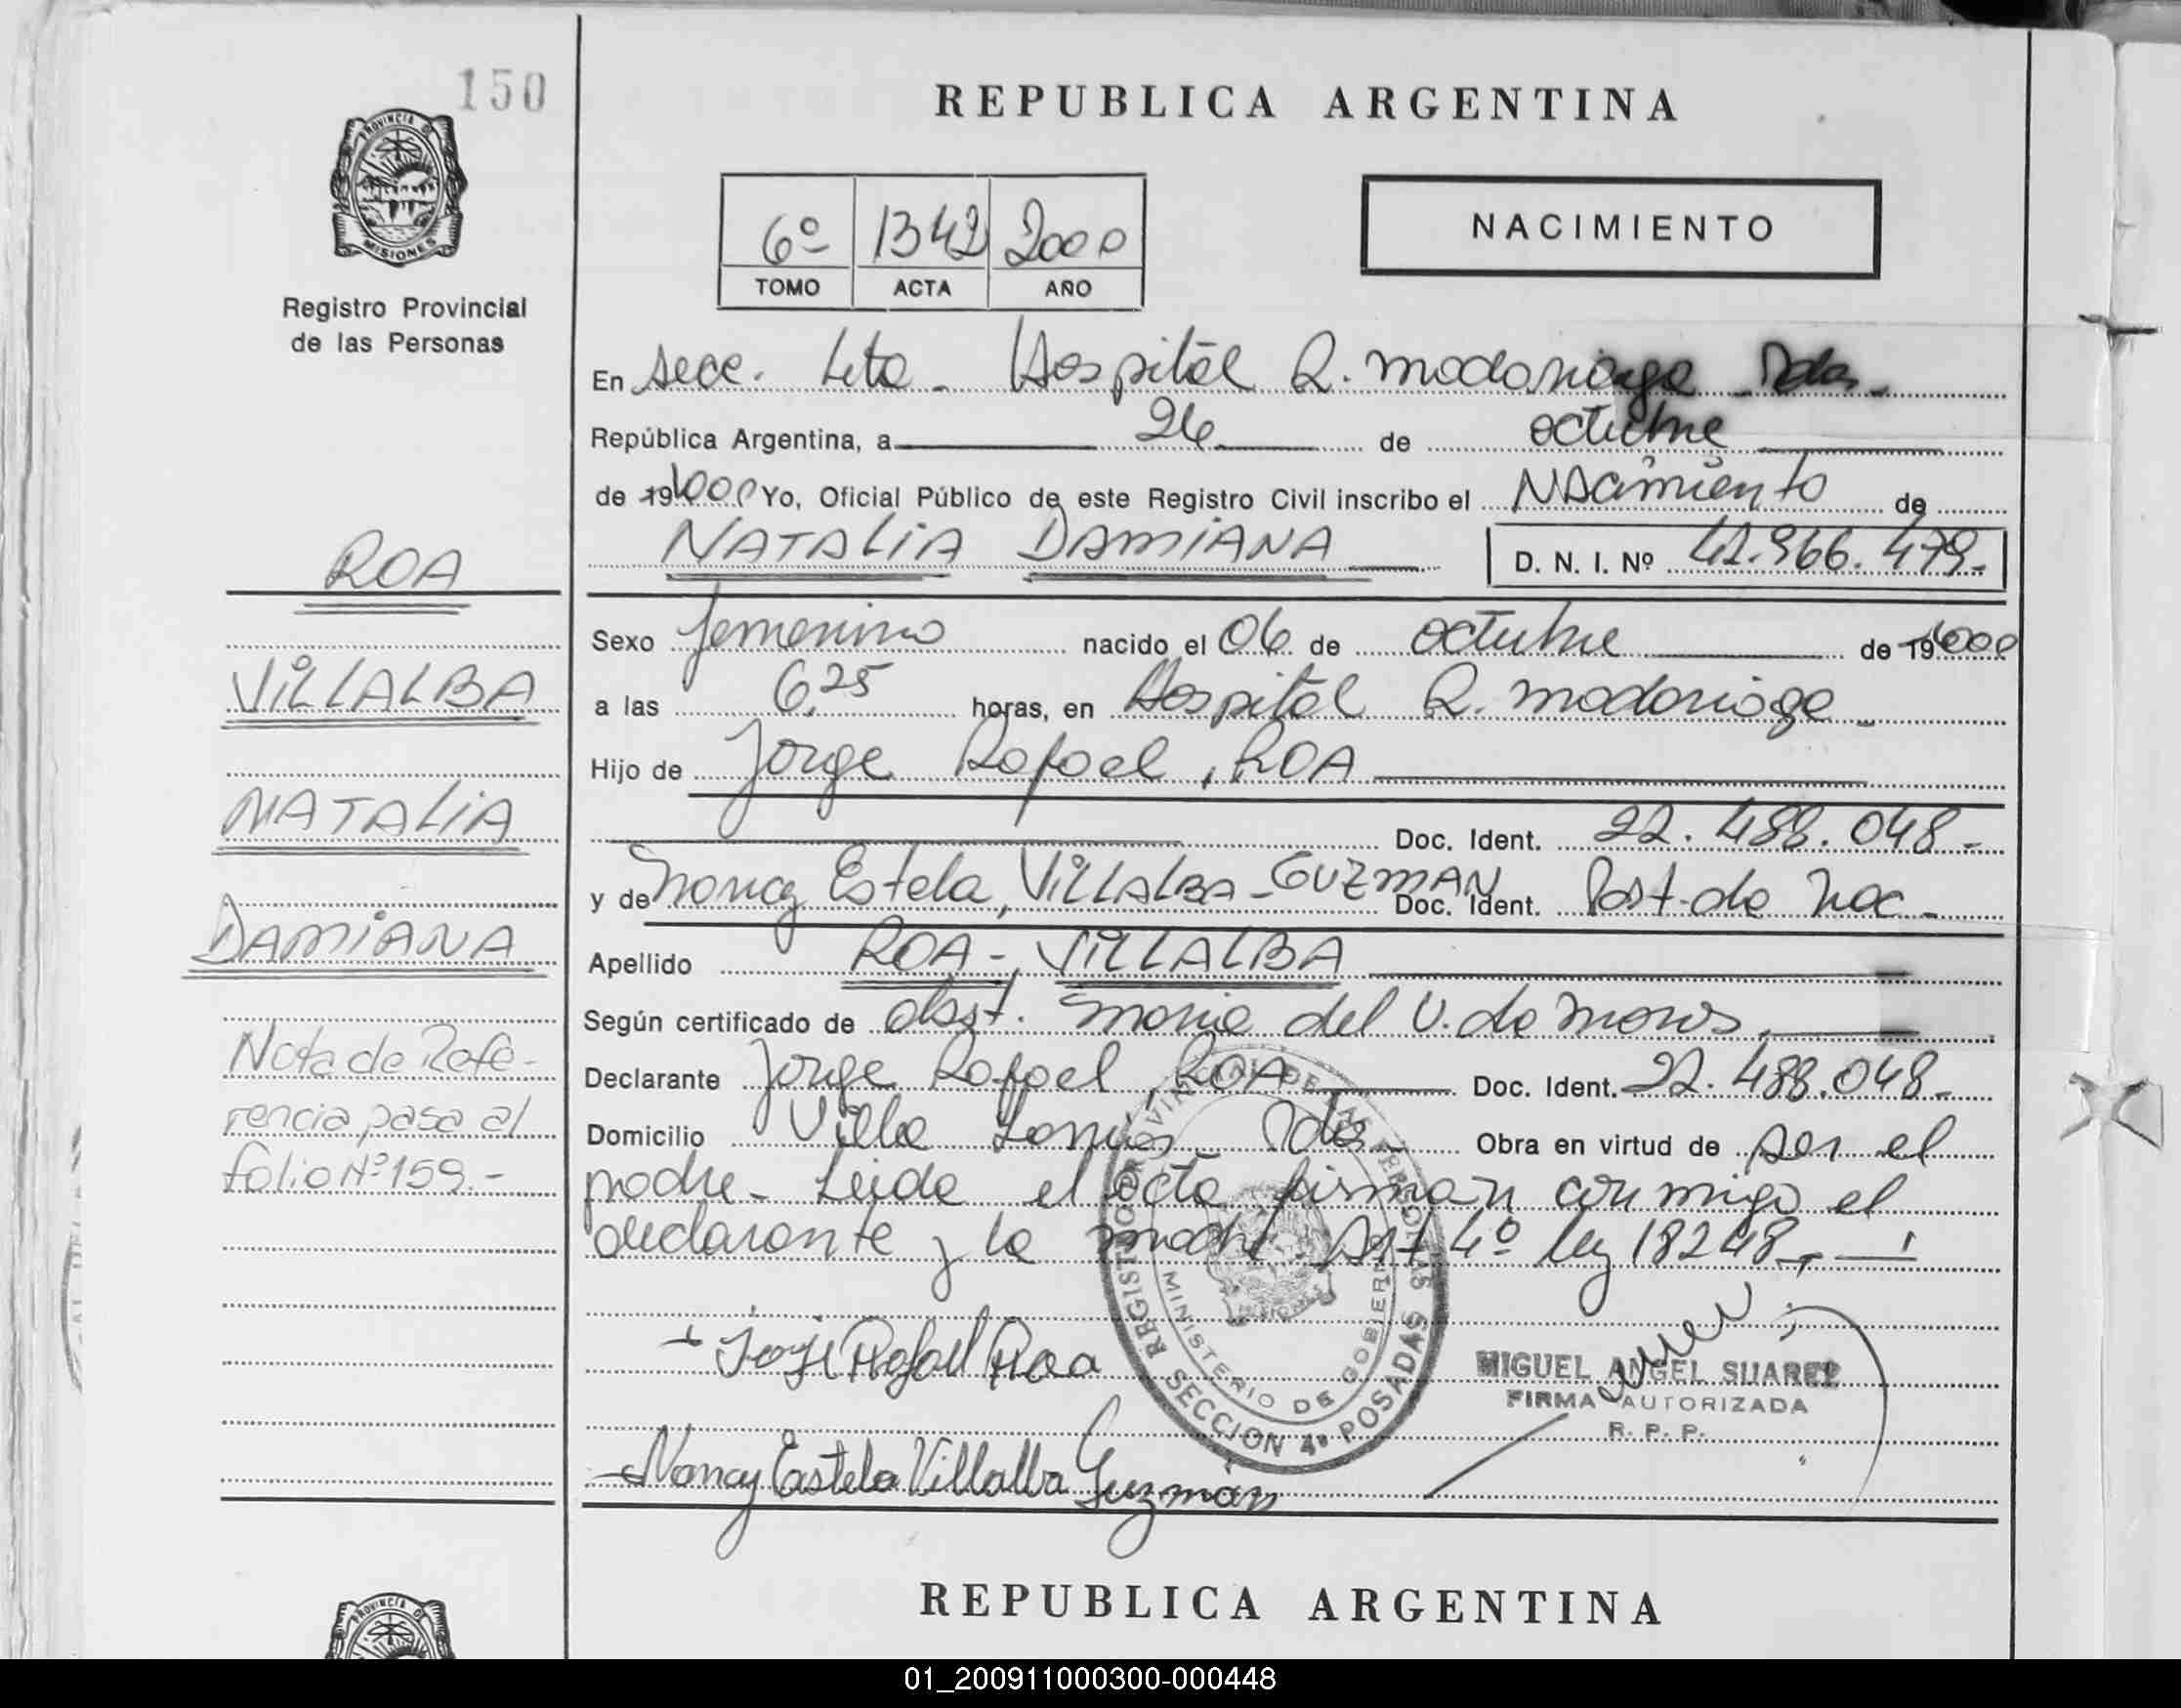 150
PROVINCIA DE
MISIONES
Registro Provincial
de las Personas
REPUBLICA ARGENTINA
6º 1342 2000
TOMO ACTA AÑO
NACIMIENTO
En secc. 4ta. Hospital R. Madariaga - Pdas -
República Argentina, a 26 de octubre
de 19 2000 Yo, Oficial Público de este Registro Civil inscribo el Nacimiento de
NATALIA DAMIANA D. N. I. Nº 42.966.479.-
Sexo femenino nacido el 06 de octubre de 19 2000
a las 6,25 horas, en Hospital R. Madariaga -
Hijo de Jorge Rafael, ROA
Doc. Ident. 22.488.048-
y de Nancy Estela, VILLALBA - GUZMAN Doc. Ident. Part. de Nac -
Apellido ROA -, VILLALBA
Según certificado de obst. Maria del V. de
Declarante Jorge Rafael, ROA Doc. Ident. 22.488.048-
Domicilio Villa Pdas - Obra en virtud de ser el
padre - Leida el acta firman conmigo el
declarante y la madre. Art 4º ley 18248.-
Jorge Rafael Roa
Nancy Estela Villalba Guzmán
ROA
VILLALBA
NATALIA
DAMIANA
Nota de Refe-
rencia pasa al
folio Nº 159.-
REGISTRO PROVINCIAL DE LAS PERSONAS
MINISTERIO DE GOBIERNO
SECCION 4ª POSADAS
MIGUEL ANGEL SUAREZ
FIRMA AUTORIZADA
R. P. P.
PROVINCIA DE
REPUBLICA ARGENTINA
01_200911000300-000448